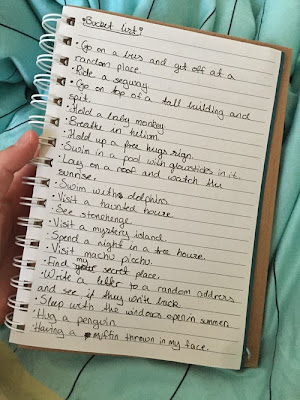 •Bucket list•
•Go on a bus and get off at a
random place.
•Ride a segway.
•Go on top of a tall building and
spit.
•Hold a baby monkey
•Breathe in helium
•Hold up a free hugs sign.
•Swim in a pool with glowsticks in it.
•Lay on a roof and watch the
sunrise.
•Swim with dolphins.
•Visit a haunted house.
•See stonehenge.
•Visit a mystery island.
•Spend a night in a tree house.
•Visit machu picchu.
•Find my secret place.
•Write a letter to a random address
and see if they write back.
•Sleep with the windows open in summer.
•Hug a penguin
Having a muffin thrown in my face.